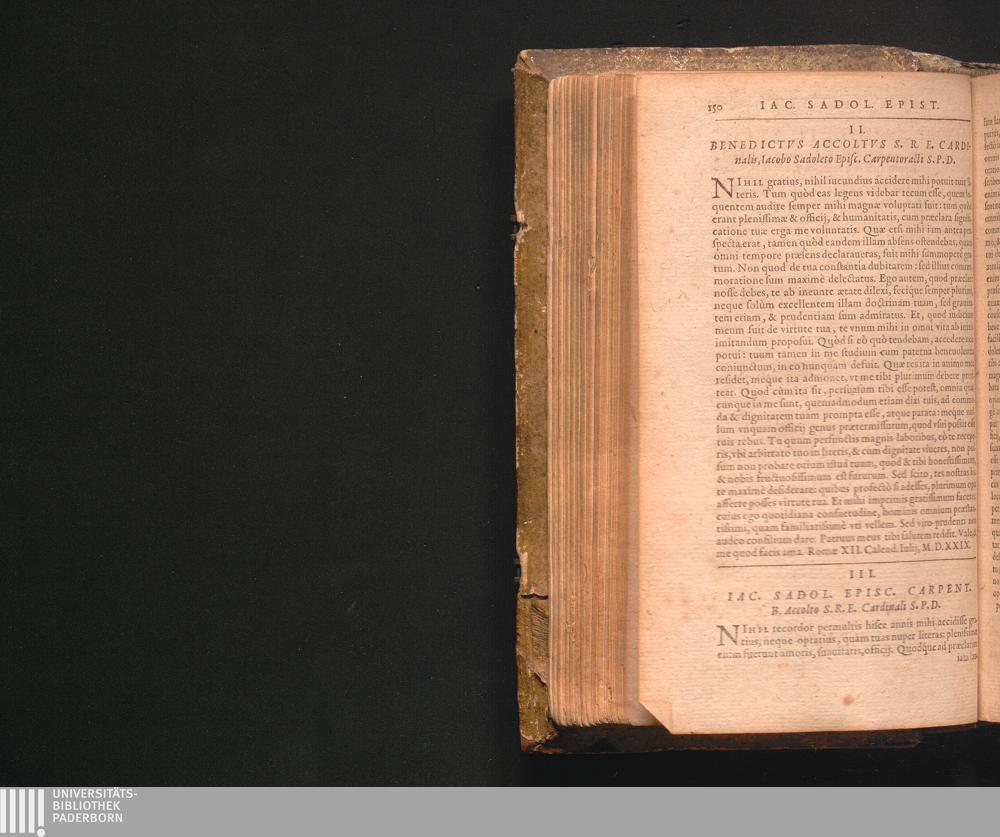 150 IAC. SADOL. EPIST.
II.
BENEDICTVS ACCOLTVS S. R. E. CARDI-
nalis, Iacobo Sadoleto Episc. Carpentoracti S.P.D.
NIHIL gratius, nihil iucundius accidere mihi potuit tuis li-
teris. Tum quòd eas legens videbar tecum esse, quem lo-
quentem audire semper mihi magnæ voluptati fuit: tum, quòd
erant plenissimæ & officij, & humanitatis, cum præclara signifi-
catione tuæ erga me voluntatis. Quæ etsi mihi iam antea per-
specta erat, tamen quòd eandem illam absens ostendebas, quam
omni tempore præsens declaraueras, fuit mihi summopere gra-
tum. Non quod de tua constantia dubitarem: sed illius comme-
moratione sum maximè delectatus. Ego autem, quod præclarè
nosse debes, te ab ineunte ætate dilexi, fecique semper plurimi,
neque solùm excellentem illam doctrinam tuam, sed grauita-
tem etiam, & prudentiam sum admiratus. Et, quod iudicium
meum fuit de virtute tua, te vnum mihi in omni vita ab initio
imitandum proposui. Quòd si eò quò tendebam, accedere non
potui: tuum tamen in me studium cum paterna beneuolentia
coniunctum, in eo nunquam defuit. Quæ res ita in animo meo
residet, meque ita admonet, vt me tibi plurimum debere pro-
fitear. Quod cùm ita sit, persuasum tibi esse potest, omnia quæ-
cunque in me sunt, quemadmodum etiam dixi tuis, ad commo-
da & dignitatem tuam prompta esse, atque parata: meque nul-
lum vnquam officij genus prætermissurum, quod vsui possit esse
tuis rebus. Tu quum perfunctis magnis laboribus, eò te recepe-
ris, vbi arbitrato tuo in literis, & cum dignitate viueres, non pos-
sum non probare otium istud tuum, quod & tibi honestissimum,
& nobis fructuosissimum est futurum. Sed scito, res nostras hic
te maximè desiderare: quibus profectò si adesses, plurimum opis
afferre posses virtute tua. Et mihi imprimis gratissimum faceres
cuius ego quotidiana consuetudine, hominis omnium præstan-
tissimi, quam familiarissimè vti vellem. Sed viro prudenti non
audeo consilium dare. Patruus meus tibi salutem reddit. Vale, &
me quod facis ama. Romæ XII. Calend. Iulij, M.D.XXIX.
III.
IAC. SADOL. EPISC. CARPENT.
B. Accolto S.R.E. Cardinali S.P.D.
NIHIL recordor permultis hisce annis mihi accidisse gra-
tius, neque optatius, quàm tuas nuper literas: plenissimæ
enim fuerunt amoris, suauitatis, officij. Quodque ad præclarum
iam
UNIVERSITÄTS-
BIBLIOTHEK
PADERBORN